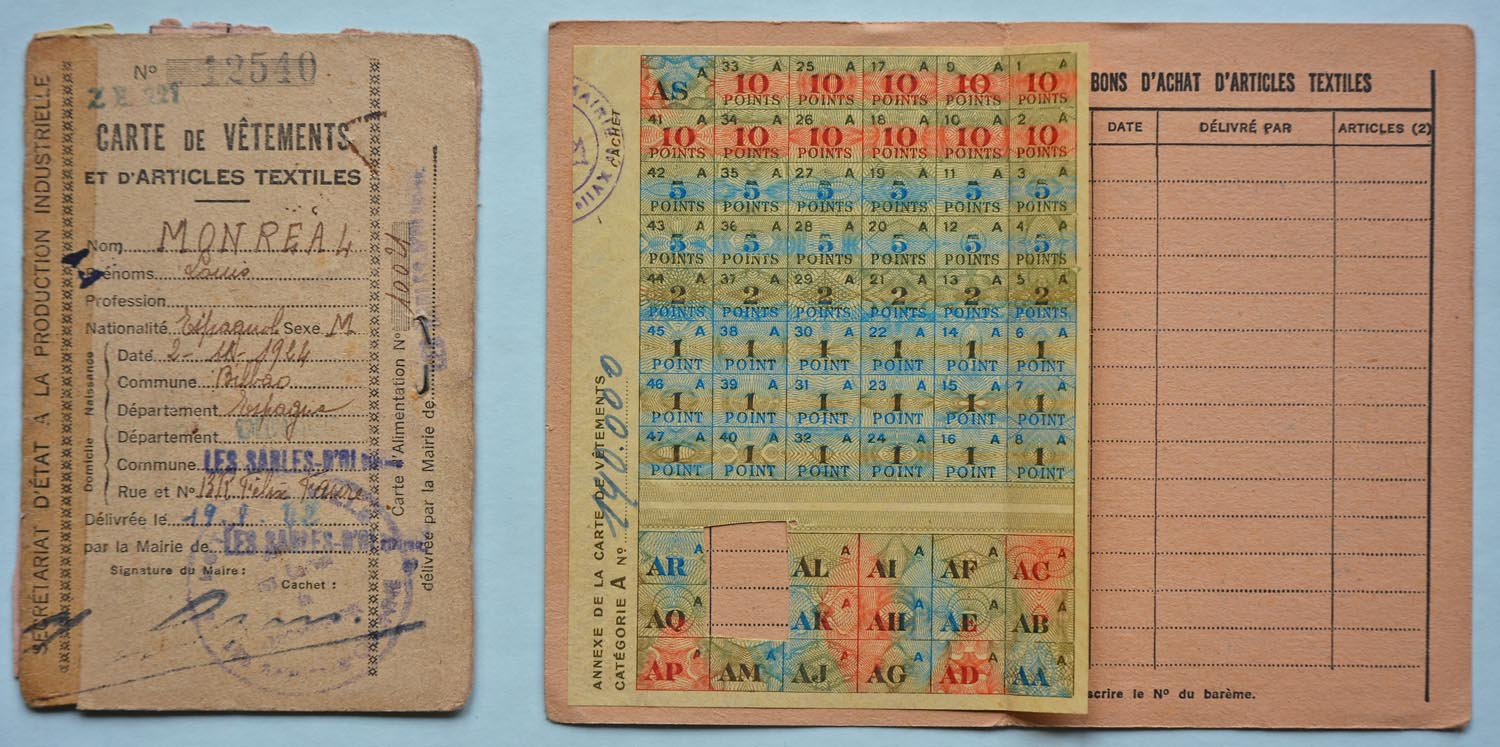 SECRÉTARIAT D'ÉTAT A LA PRODUCTION INDUSTRIELLE
Nº 12540
CARTE DE VÊTEMENTS
ET D'ARTICLES TEXTILES
Nom MONREAL
Prénoms Louis
Profession
Nationalité Espagnol Sexe M
Naissance
Date 2-
Commune Bilbao
Département Espagne
Domicile
Département
Commune LES SABLES-D'OL
Rue et Nº Félix Faure
Délivrée le 19.
par la Mairie de LES SABLES-D'OL
Signature du Maire :
Cachet :
Carte d'Alimentation Nº
délivrée par la Mairie de
CACHET
ANNEXE DE LA CARTE DE VÊTEMENTS
CATÉGORIE A Nº
AS A 33 A 25 A 17 A 9 A 1 A
10 10 10 10 10
POINTS POINTS POINTS POINTS POINTS
41 A 34 A 26 A 18 A 10 A 2 A
10 10 10 10 10 10
POINTS POINTS POINTS POINTS POINTS POINTS
42 A 35 A 27 A 19 A 11 A 3 A
5 5 5 5 5 5
POINTS POINTS POINTS POINTS POINTS POINTS
43 A 36 A 28 A 20 A 12 A 4 A
5 5 5 5 5 5
POINTS POINTS POINTS POINTS POINTS POINTS
44 A 37 A 29 A 21 A 13 A 5 A
2 2 2 2 2 2
POINTS POINTS POINTS POINTS POINTS POINTS
45 A 38 A 30 A 22 A 14 A 6 A
1 1 1 1 1 1
POINT POINT POINT POINT POINT POINT
46 A 39 A 31 A 23 A 15 A 7 A
1 1 1 1 1 1
POINT POINT POINT POINT POINT POINT
47 A 40 A 32 A 24 A 16 A 8 A
1 1 1 1 1 1
POINT POINT POINT POINT POINT POINT
AR A AL A AI A AF A AC A
AQ A AK A AH A AE A AB A
AP A AM A AJ A AG A AD A AA A
BONS D'ACHAT D'ARTICLES TEXTILES
DATE DÉLIVRÉ PAR ARTICLES (2)
scrire le Nº du barème.